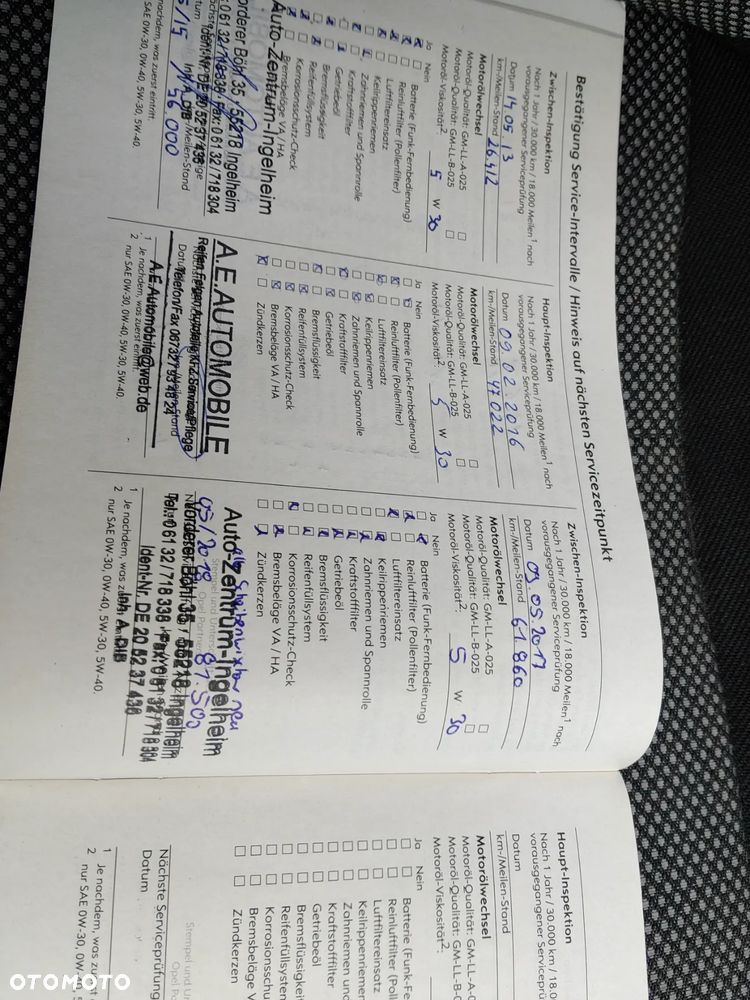 Bestätigung Service-Intervalle / Hinweis auf nächsten Servicezeitpunkt
Zwischen-Inspektion
Nach 1 Jahr / 30.000 km / 18.000 Meilen¹ nach
vorausgegangener Serviceprüfung
Datum 14 05 13
km-/Meilen-Stand 26.412
Motorölwechsel
Motoröl-Qualität: GM-LL-A-025
Motoröl-Qualität: GM-LL-B-025
Motoröl-Viskosität²: 5 W 30
Ja Nein
Batterie (Funk-Fernbedienung)
Reinluftfilter (Pollenfilter)
Luftfiltereinsatz
Keilrippenriemen
Zahnriemen und Spannrolle
Kraftstofffilter
Getriebeöl
Bremsflüssigkeit
Reifenfüllsystem
Korrosionsschutz-Check
Bremsbeläge VA / HA
Auto-Zentrum-Ingelheim
Vorderer Böhl 35 · 55218 Ingelheim
06132/718 338 · Fax: 06132/718 304
Ident-Nr. DE 20 52 37 436
Inh. A. DIB
/Meilen-Stand
5/15 56.000
nachdem, was zuerst eintritt.
SAE 0W-30, 0W-40, 5W-30, 5W-40.
Haupt-Inspektion
Nach 1 Jahr / 30.000 km / 18.000 Meilen¹ nach
vorausgegangener Serviceprüfung
Datum 09.02.2016
km-/Meilen-Stand 47022
Motorölwechsel
Motoröl-Qualität: GM-LL-A-025
Motoröl-Qualität: GM-LL-B-025
Motoröl-Viskosität²: 5 W 30
Ja Nein
Batterie (Funk-Fernbedienung)
Reinluftfilter (Pollenfilter)
Luftfiltereinsatz
Keilrippenriemen
Zahnriemen und Spannrolle
Kraftstofffilter
Getriebeöl
Bremsflüssigkeit
Reifenfüllsystem
Korrosionsschutz-Check
Bremsbeläge VA / HA
Zündkerzen
A.E.AUTOMOBILE
Telefon/Fax 06132
A.E.Automobile@web.de
1 Je nachdem, was zuerst eintritt.
2 nur SAE 0W-30, 0W-40, 5W-30, 5W-40.
Zwischen-Inspektion
Nach 1 Jahr / 30.000 km / 18.000 Meilen¹ nach
vorausgegangener Serviceprüfung
Datum 09 05 2017
km-/Meilen-Stand 61860
Motorölwechsel
Motoröl-Qualität: GM-LL-A-025
Motoröl-Qualität: GM-LL-B-025
Motoröl-Viskosität²: 5 W 30
Ja Nein
Batterie (Funk-Fernbedienung)
Reinluftfilter (Pollenfilter)
Luftfiltereinsatz
Keilrippenriemen
Zahnriemen und Spannrolle
Kraftstofffilter
Getriebeöl
Bremsflüssigkeit
Reifenfüllsystem
Korrosionsschutz-Check
Bremsbeläge VA / HA
Zündkerzen
Auto-Zentrum-Ingelheim
05/2018 81500
Vorderer Böhl 35 · 55218 Ingelheim
Tel.: 06132/718 338 · Fax: 06132/718 304
Ident-Nr. DE 20 52 37 436
Inh. A. DIB
1 Je nachdem, was
2 nur SAE 0W-30, 0W-40, 5W-30, 5W-40.
Haupt-Inspektion
Nach 1 Jahr / 30.000 km / 18.000 Meilen
vorausgegangener Serviceprü
Datum
km-/Meilen-Stand
Motorölwechsel
Motoröl-Qualität: GM-LL
Motoröl-Qualität: GM-L
Motoröl-Viskosität²:
Ja Nein
Batterie (Funk-Fe
Reinluftfilter (P
Luftfiltereinsatz
Keilrippenrieme
Zahnriemen u
Kraftstofffilter
Getriebeöl
Bremsflüssigke
Reifenfüllsystem
Korrosionssch
Bremsbeläge V
Zündkerzen
Stempel und U
Opel Pa
Nächste Serviceprüfung
Datum
1 Je nachdem, was zu
2 nur SAE 0W-30,
OTOMOTO